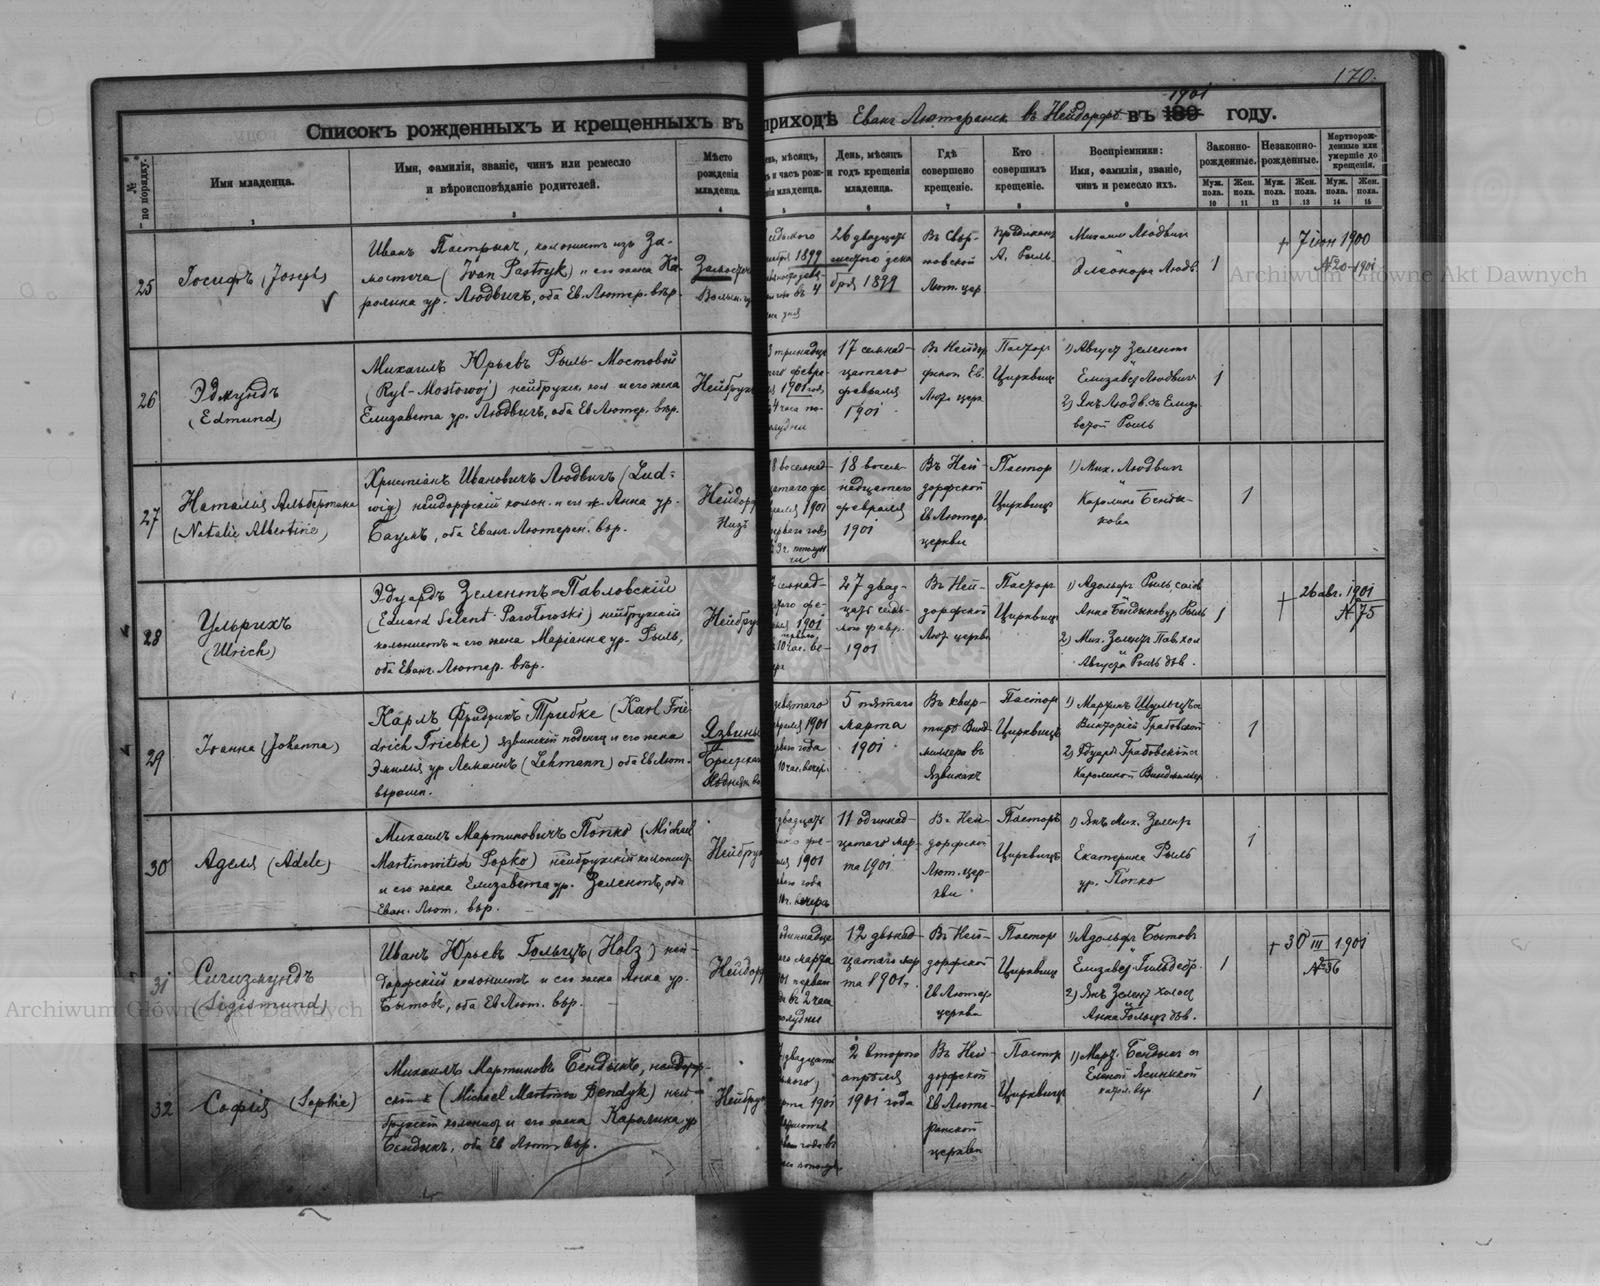 170.
Списокъ рожденныхъ и крещенныхъ въ приходѣ Еванг Лютеранск въ Нейдорфѣ въ 189 1901 году.
№ по порядку.
Имя младенца.
Имя, фамилія, званіе, чинъ или ремесло
и вѣроисповѣданіе родителей.
Мѣсто
рожденія
младенца.
День, мѣсяцъ
и годъ крещенія
младенца.
Гдѣ
совершено
крещеніе.
Кто
совершилъ
крещеніе.
Воспріемники:
Имя, фамилія, званіе,
чинъ и ремесло ихъ.
Законно-
рожденные.
Незаконно-
рожденные.
Мертворож-
денные или
умершіе до
крещенія.
Муж. пола.
Жен. пола.
Муж. пола.
Жен. пола.
Муж. пола.
Жен. пола.
1 2 3 4 5 6 7 8 9 10 11 12 13 14 15
25
Іосифъ (Joseph)
Иванъ Пастрыкъ, колонистъ изъ За-
мостеча (Ivan Pastryk) и его жена Ка-
ролина ур. Людвигъ, оба Ев. Лютер. вѣр.
Замостече
Волын. г.
1899
26 двадцать
шестого дека
бря 1899
Въ Свѣр-
новской
Лют. цер
А. Рыль
Михаилъ Людвигъ
Элеонора Людв.
1
+ 7 іюн 1900
№20-1901
26
Эдмундъ
(Edmund)
Михаилъ Юрьевъ Рыль-Мостовой
(Ryl-Mostowoj) нейбружс. кол и его жена
Елизавета ур. Людвигъ, оба Ев Лютер. вѣр.
Нейбружс
тринадца
того февра-
ля 1901 год
4 часа по-
лудни
17 семнад-
цатаго
февраля
1901
Въ Нейдор
фской Ев.
Лют. церк
Пасторъ
Цирквицъ
1) Августъ Зелентъ
Елизавет Людвигъ
2) Янъ Людв. съ Елиза-
ветой Рыль
1
27
Наталія Альбертина
(Natalie Albertine)
Христіанъ Ивановичъ Людвигъ (Lud=
wig) нейдорфскій колон. и его ж. Анна ур.
Баумъ, оба Еванг. Лютеран. вѣр.
Нейдорф
Низъ
18 восемнад-
цатаго фе-
враля 1901
перваго года
18 восем-
надцатаго
февраля
1901
Въ Ней-
дорфской
Ев Лютер.
церкви
Пасторъ
Цирквицъ
1) Мих. Людвигъ
Каролина Бенды-
кова
1
28
Ульрихъ
(Ulrich)
Эдуардъ Зелентъ-Павловскій
(Eduard Selent-Pawlowski) нейбружскій
колонистъ и его жена Маріанна ур. Рыль,
оба Еванг. Лютер. вѣр.
Нейбру
1901
10 час. ве-
27 двад-
цать седь-
мого февр.
1901
Въ Ней-
дорфской
Лют. церкв
Пасторъ
Цирквицъ
1) Адольфъ Рыль
Анна Бендыкъ ур. Рыль
2) Мих. Зелентъ Пав. хол
Августа Рыль дѣв.
1
+ 26 авг. 1901
№75
29
Іоанна (Johanna)
Карлъ Фридрихъ Трибке (Karl Frie
drich Triebke) язвинскій поденщ и его жена
Эмилія ур Леманнъ (Lehmann) оба Ев Лют.
вѣроисп.
Язвины
девятаго
1901
10 час. вечер.
5 пятаго
марта
1901
Въ квар-
тирѣ Винд-
миллера въ
Язвинахъ
Пасторъ
Цирквицъ
1) Мартинъ Шульцъ съ
Викторіей Грабовской
2) Эдуардъ Грабовскій съ
Каролиной Виндмиллер
1
30
Аделя (Adele)
Михаилъ Мартиновичъ Попко (Michael
Martinowitsch Popko) нейбружскій колонист
и его жена Елизавета ур. Зелентъ, оба
Еван. Лют. вѣр.
Нейбруж
двадцать
1901
вечера
11 одиннад-
цатаго мар-
та 1901
Въ Ней-
дорфской
Лют. цер-
кви
Пасторъ
Цирквицъ
1) Янъ Мих. Зелентъ
Екатерина Рыль
ур. Попко
1
31
Сигизмундъ
(Sigismund)
Иванъ Юрьевъ Гольцъ (Holz) ней-
дорфскій колонистъ и его жена Анна ур.
Бытовъ, оба Ев Лют. вѣр.
Нейдорф
одиннадца
того марта
въ 2 часа
полудни
12 двѣнад-
цатаго мар-
та 1901.
Въ Ней-
дорфской
Ев Лютер
церкви
Пасторъ
Цирквицъ
1) Адольфъ Бытовъ
Елизавет. Гильдебр.
2) Янъ Зелентъ холост
Анна Гольцъ дѣв.
1
+ 30 III 1901
№36
32
Софія (Sophie)
Михаилъ Мартиновъ Бендыкъ, нейдорф-
скій (Michael Martinow Bendyk) ней-
бружскій колонист и его жена Каролина ур
Бендыкъ, оба Ев Лют. вѣр.
Нейбруж
двадцать
марта 1901
2 второго
апрѣля
1901 года
Въ Ней-
дорфской
Ев Люте-
ранской
церкви
Пасторъ
Цирквицъ
1) Март. Бендыкъ съ
Еленой Ясинской
катол. вѣр
1
Archiwum Główne Akt Dawnych
Archiwum Główne Akt Dawnych